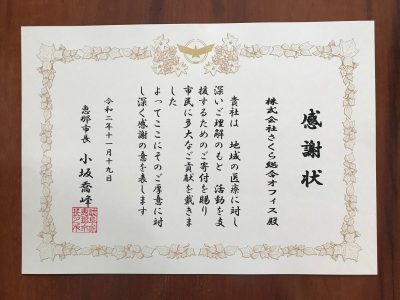 感謝状
株式会社さくら総合オフィス殿
貴社は 地域の医療に対し
深いご理解のもと 活動を支
援するためのご寄付を賜り
市民に多大なご貢献を戴きま
した
よってここにそのご厚意に対
し深く感謝の意を表します
令和二年十一月十九日
恵那市長 小坂喬峰